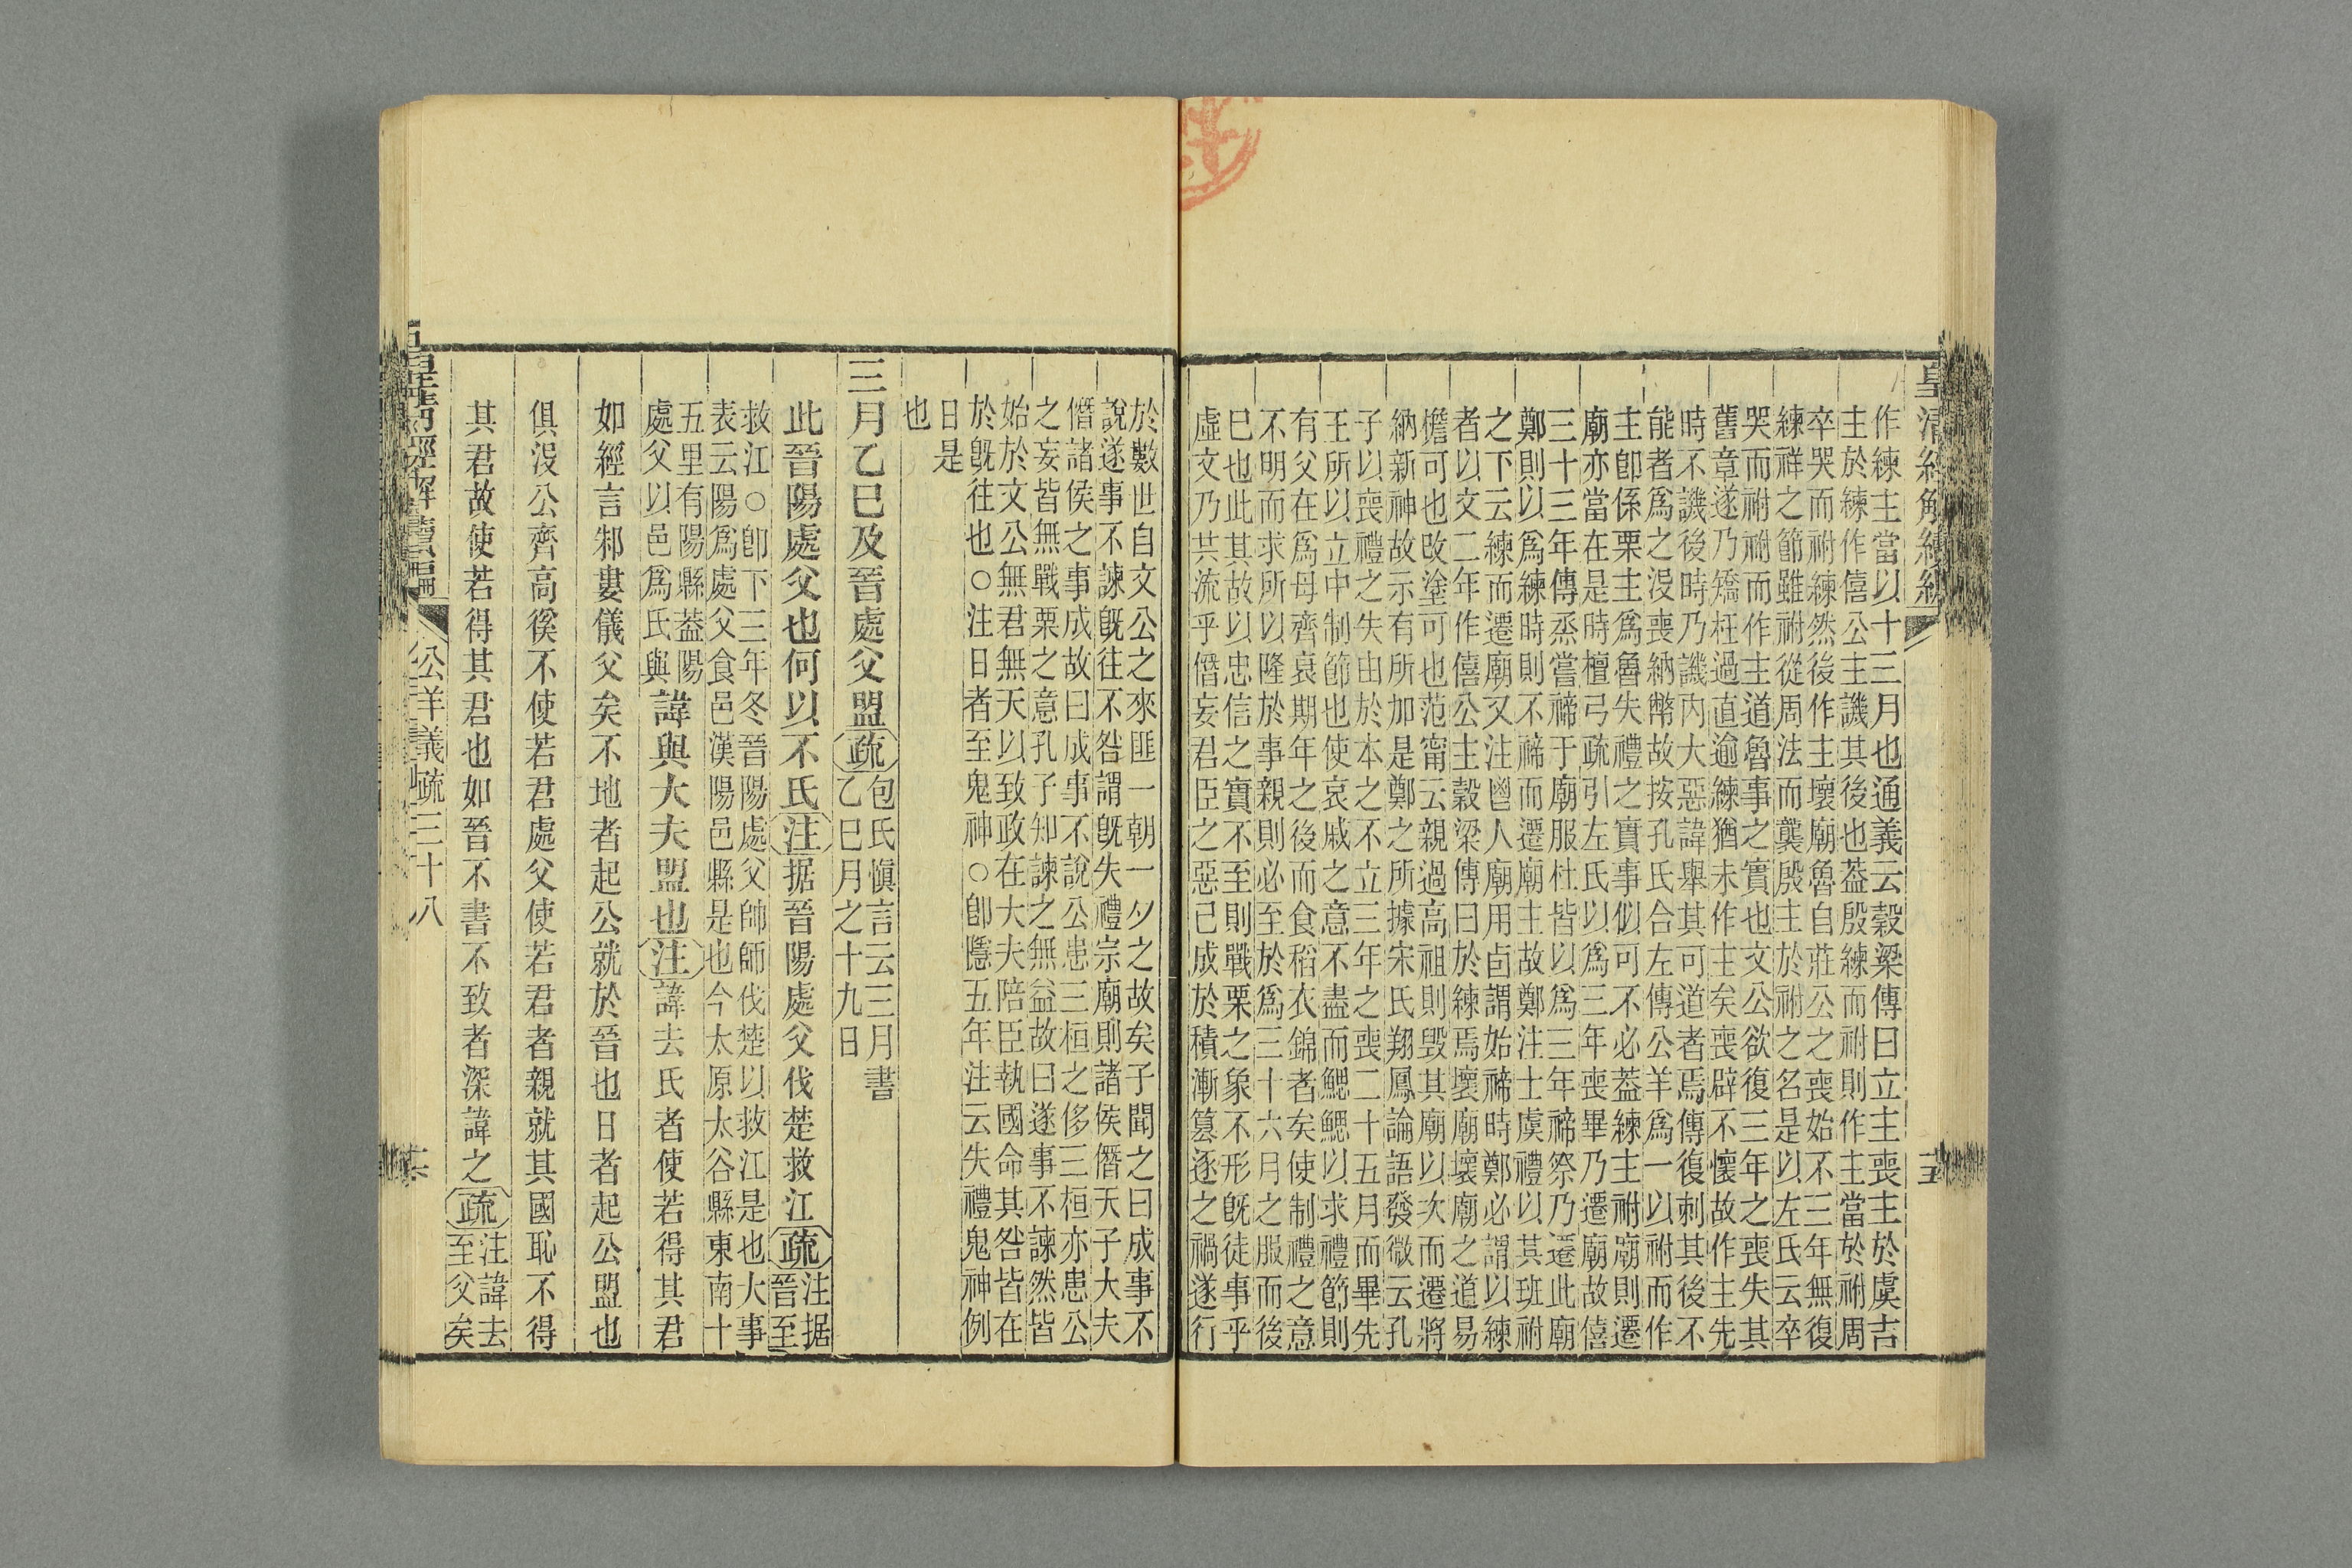 作練主當以十三月也通義云穀梁傳曰立主喪主於虞吉
主於練作僖公主譏其後也葢殷練而祔則作主當於祔周
卒哭而祔練然後作主壞廟魯自莊公之喪始不三年無復
練祥之節雖祔從周法而龔殷主於祔之名是以左氏云卒
哭而祔祔而作主道魯事之實也文公欲復三年之喪失其
舊章遂乃矯枉過直逾練猶未作主矣喪辟不懷故作主先
時不譏後時乃譏內大惡諱舉其可道者焉傳復刺其後不
能者爲之沒喪納幣故按孔氏合左傳公羊爲一以祔而作
主卽係栗主爲魯失禮之實事似可不必葢練主祔廟則遷
廟亦當在是時檀弓疏引左氏以爲三年喪畢乃遷廟故僖
三十三年傳烝嘗禘于廟服杜皆以爲三年禘祭乃遷此廟
鄭則以爲練時則不禘而遷廟主故鄭注士虞禮以其班祔
之下云練而遷廟又注鬯人廟用卣謂始禘時鄭必謂以練
者以文二年作僖公主穀梁傳曰於練焉壞廟壞廟之道易
檐可也改塗可也范甯云親過高祖則毀其廟以次而遷將
納新神故示有所加是鄭之所據宋氏翔鳳論語發微云孔
子以喪禮之失由於本之不立三年之喪二十五月而畢先
王所以立中制節也使哀戚之意不盡而鰓鰓以求禮節則
有父在爲母齊衰期年之後而食稻衣錦者矣使制禮之意
不明而求所以隆於事親則必至於爲三十六月之服而後
巳也此其故以忠信之實不至則戰栗之象不形旣徒事乎
虛文乃共流乎僭妄君臣之惡已成於積漸篡逐之禍遂行
皇清經解續編
於數世自文公之來匪一朝一夕之故矣子聞之曰成事不
說遂事不諫旣往不咎謂旣失禮宗廟則諸侯僭天子大夫
僭諸侯之事成故曰成事不說公患三桓之侈三桓亦患公
之妄皆無戰栗之意孔子知諫之無益故曰遂事不諫然皆
始於文公無君無天以致政在大夫陪臣執國命其咎皆在
於旣往也○注日者至鬼神○卽隱五年注云失禮鬼神例
日是
也
三月乙巳及晉處父盟疏包氏愼言云三月書
乙巳月之十九日
此晉陽處父也何以不氏注据晉陽處父伐楚救江疏注据
晉至
救江○卽下三年冬晉陽處父帥師伐楚以救江是也大事
表云陽爲處父食邑漢陽邑縣是也今太原太谷縣東南十
五里有陽縣葢陽
處父以邑爲氏與諱與大夫盟也注諱去氏者使若得其君
如經言邾婁儀父矣不地者起公就於晉也日者起公盟也
俱沒公齊高徯不使若君處父使若君者親就其國恥不得
其君故使若得其君也如晉不書不致者深諱之疏注諱去
至父矣
皇淸經解續編 公羊義疏三十八